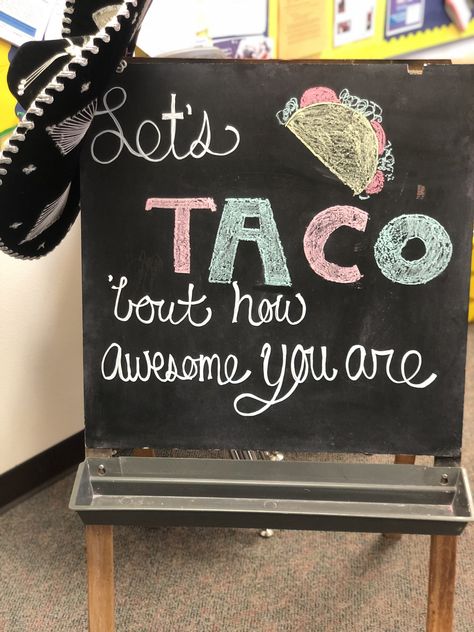 Let's
TACO
'bout how
awesome you are